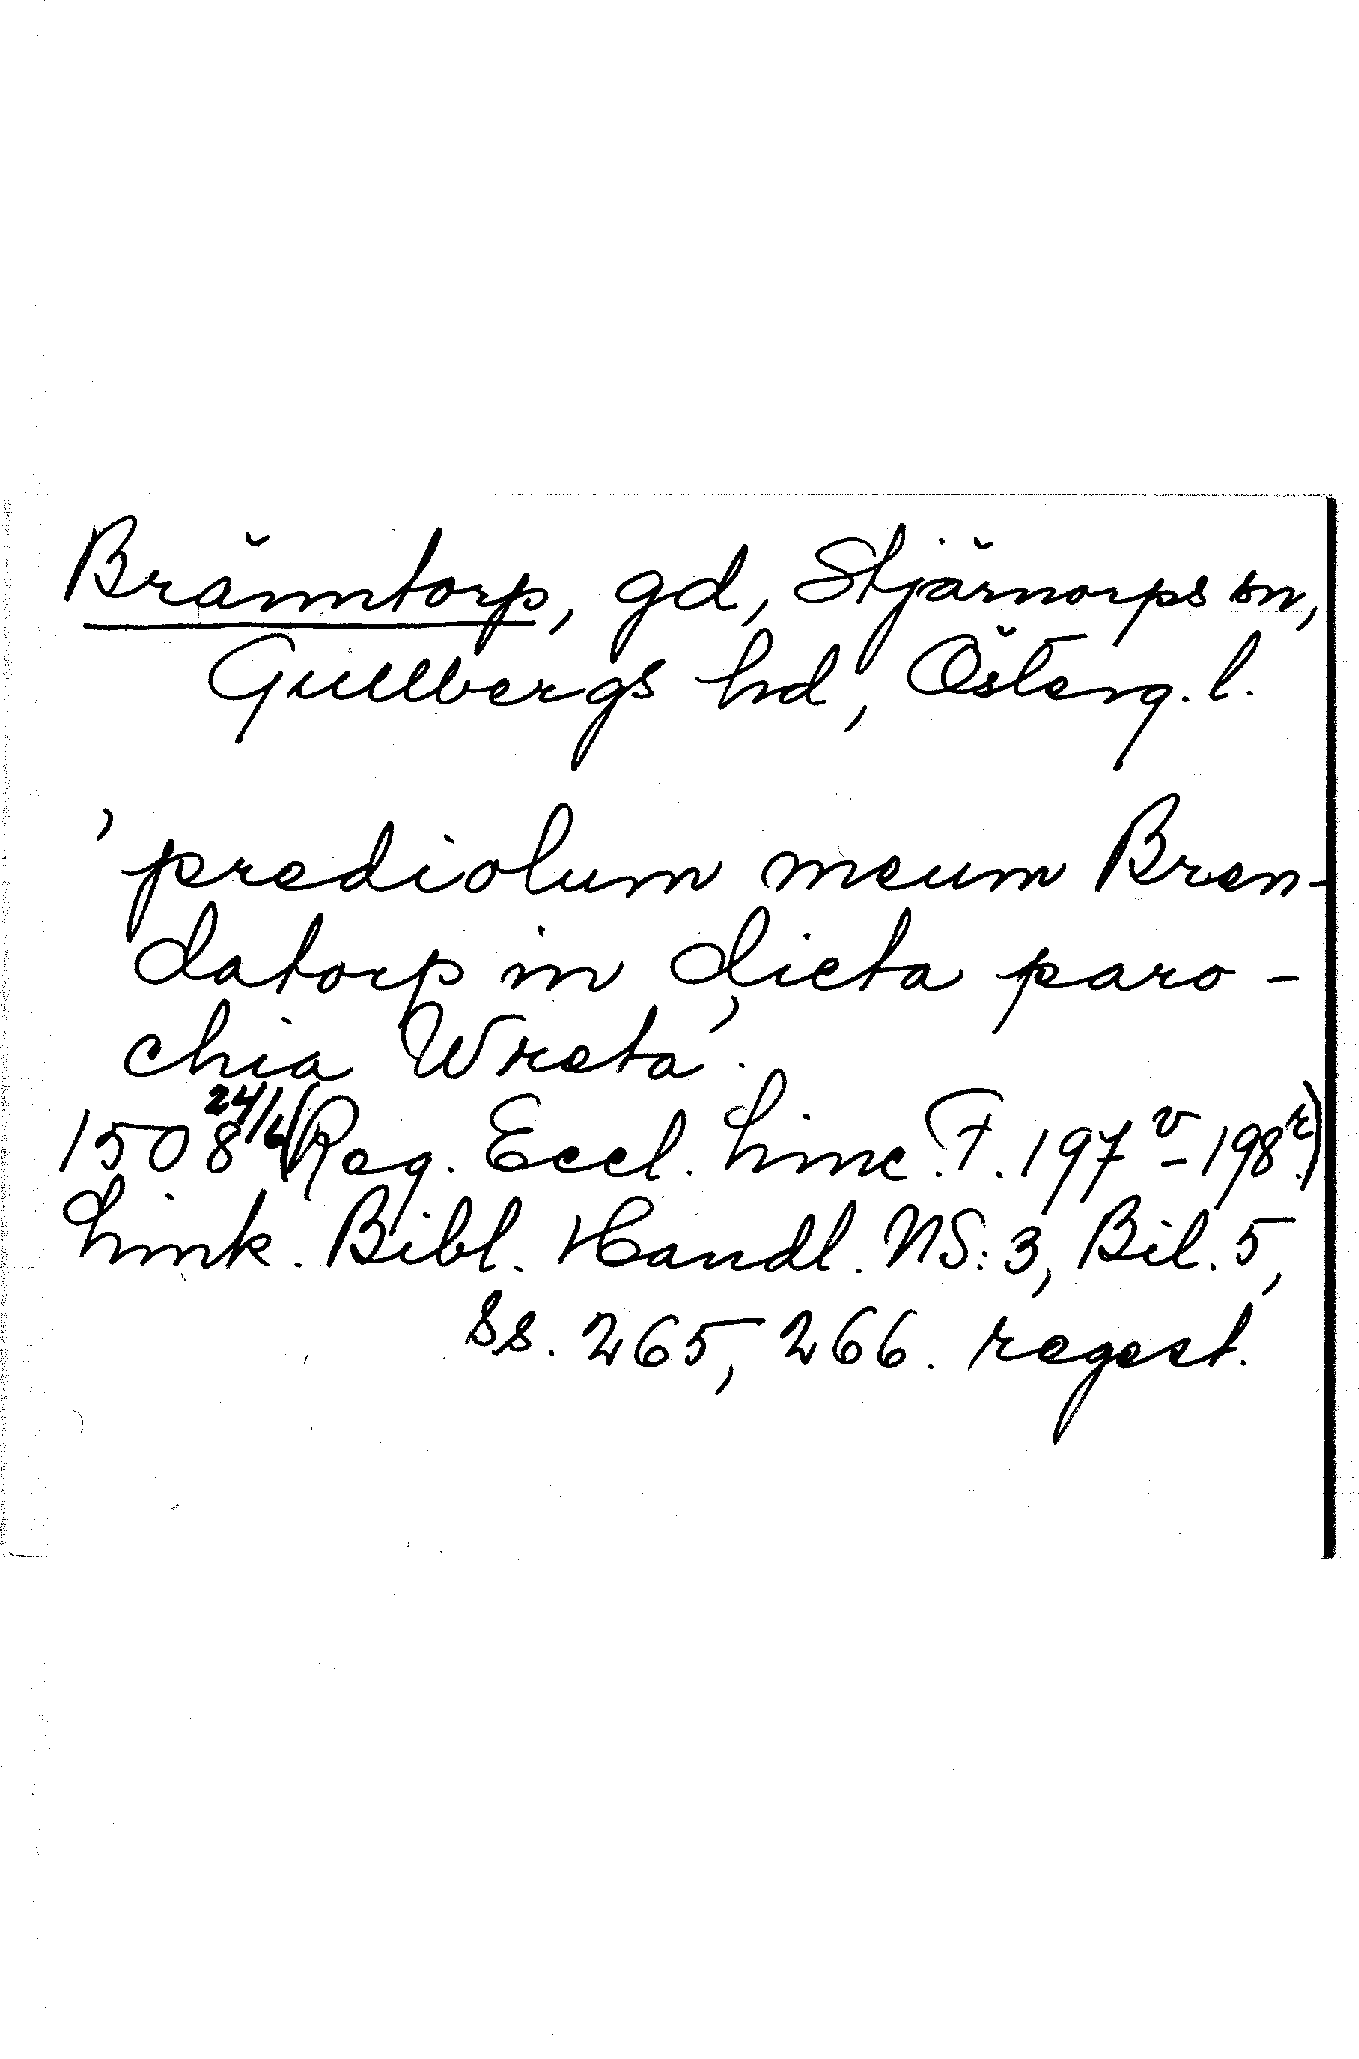 Bränntorp, gd, Stjärnorps sn,
Gullbergs hd, Österg. l.
’prediolum meum Bren-
datorp in dicta paro-
chia Wreta’.
1508 24/6 (Reg. Eccl. Linc. F. 197v-198r.)
Link. Bibl. Handl. NS: 3, Bil. 5,
ss. 265, 266. regest.